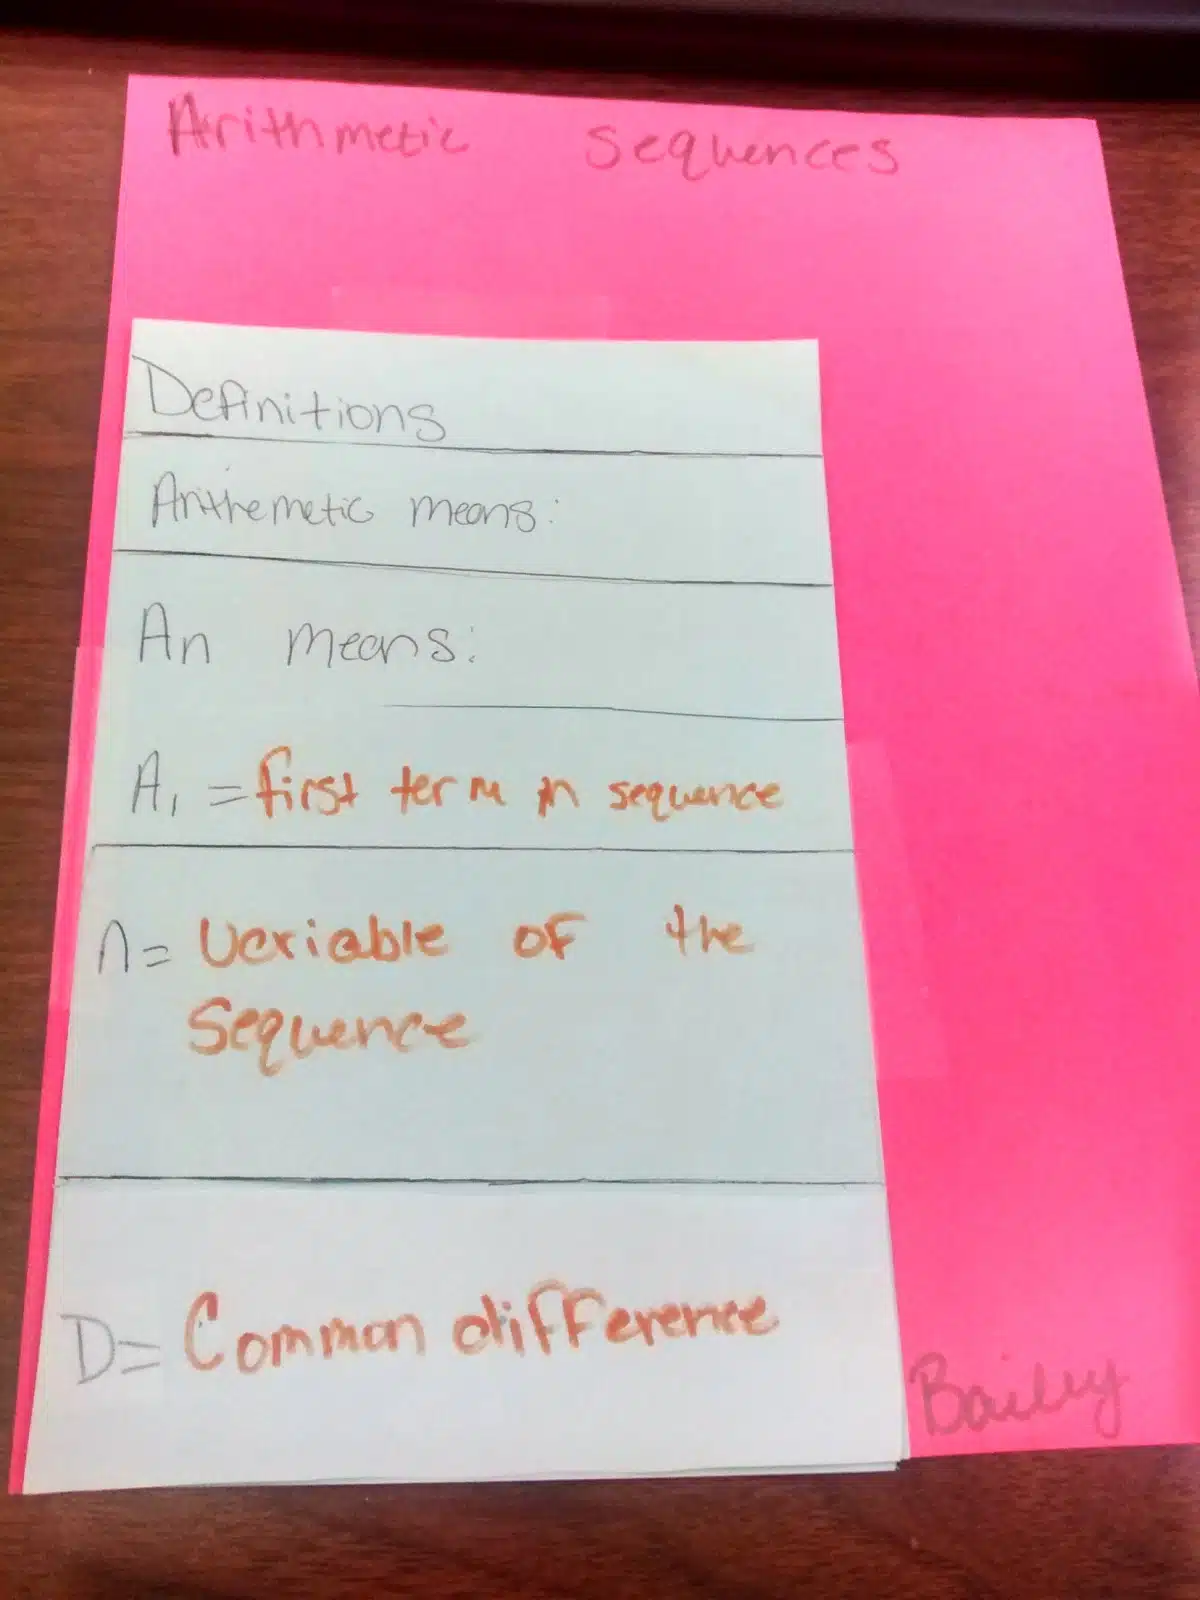 Arithmetic sequences
Definitions
Arithemetic means:
An means:
A1 = first term in sequence
n= Variable of the
Sequence
D= Common difference
Bailey